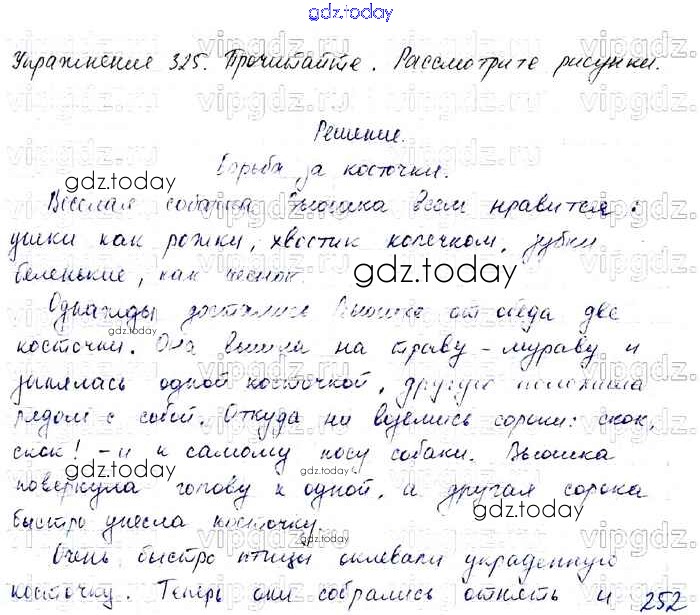 gdz.today
Упражнение 325. Прочитайте. Рассмотрите рисунки.
Решение.
Борьба за косточки.
gdz.today
Веселая собачка Вьюшка всем нравится:
ушки как рожки, хвостик колечком, зубки
беленькие, как чеснок.
gdz.today
Однажды достались Вьюшке от обеда две
gdz.today
косточки. Она вышла на траву-мураву и
занялась одной косточкой, другую положила
рядом с собой. Откуда ни взялись сороки: скок,
скок! - и к самому носу собаки. Вьюшка
gdz.today
повернула голову к одной, а другая сорока
gdz.today
быстро унесла косточку.
Очень быстро птицы склевали украденную
косточку. Теперь они собрались отнять и
gdz.today
252